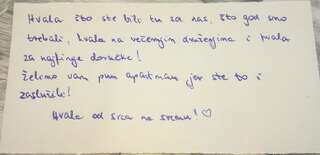 Hvala što ste bili tu sa nas, što god smo
trebali, hvala na večernjim druženjima i hvala
za najfinije doručke!
Želimo vam pun apartman jer ste to i
zaslužili!
Hvala od srca na svemu! ♡